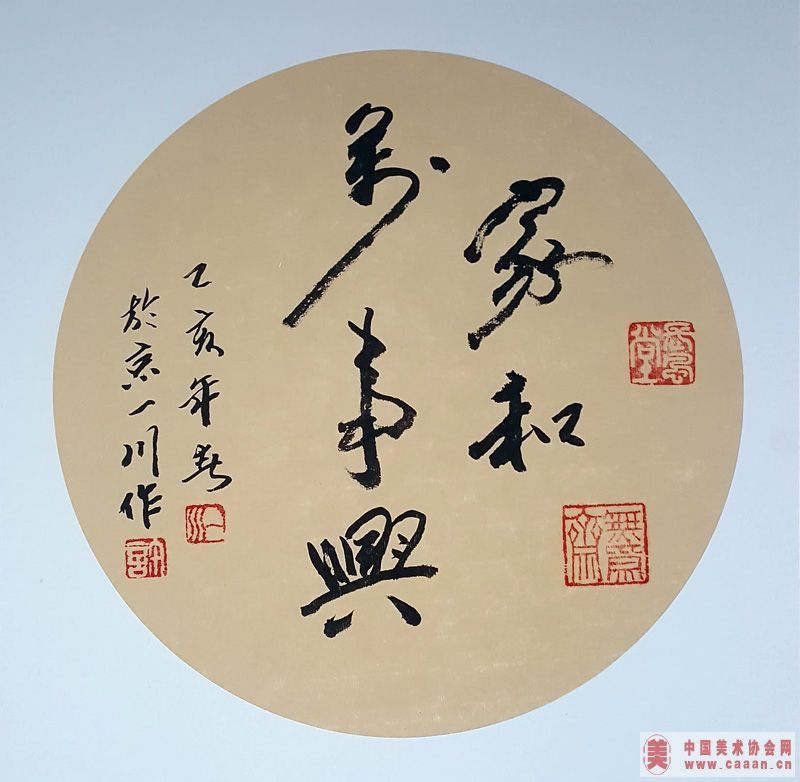 家和
萬事興
己亥年春
於京一川作
中国美术协会网
www.caaan.cn